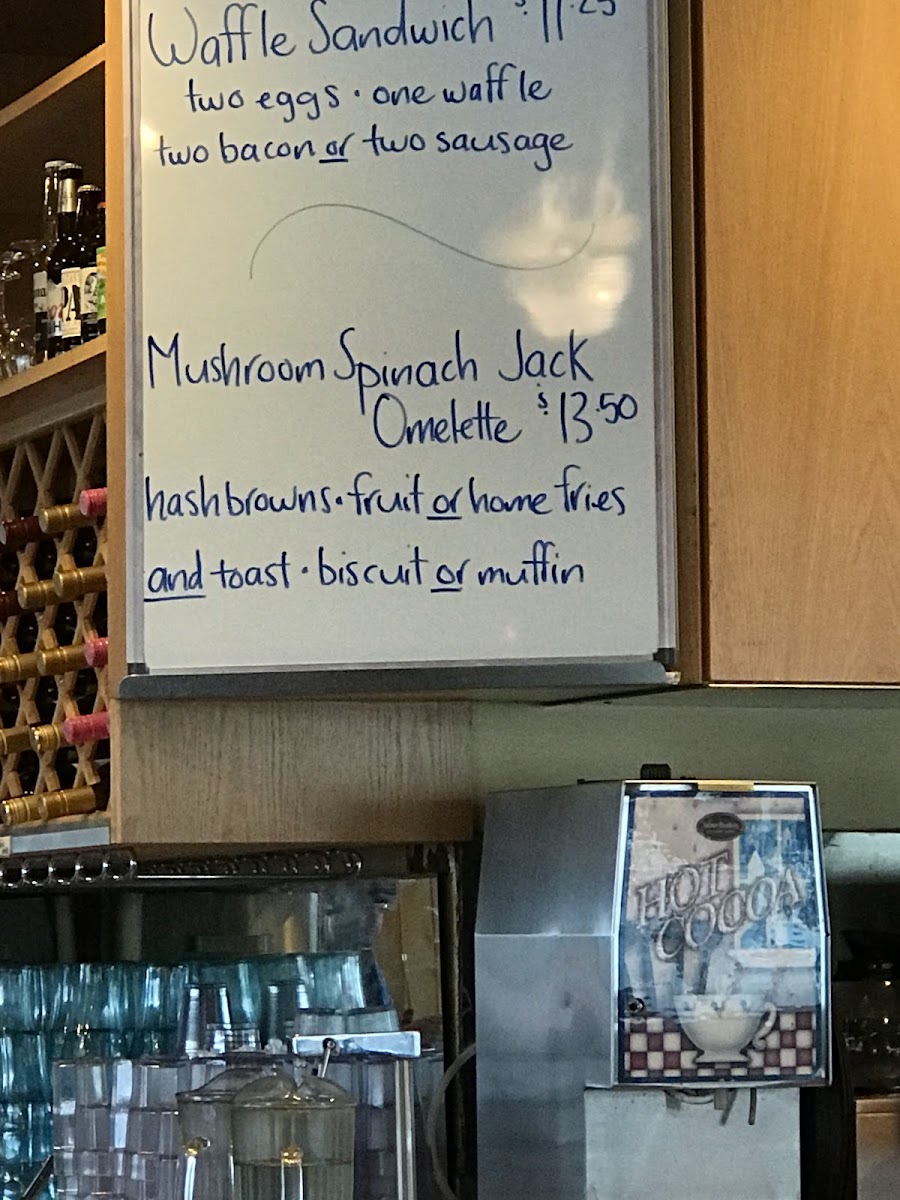 Waffle Sandwich $11.25
two eggs · one waffle
two bacon or two sausage
Mushroom Spinach Jack
Omelette $13.50
hashbrowns · fruit or home fries
and toast · biscuit or muffin
PA
HOT
COCOA